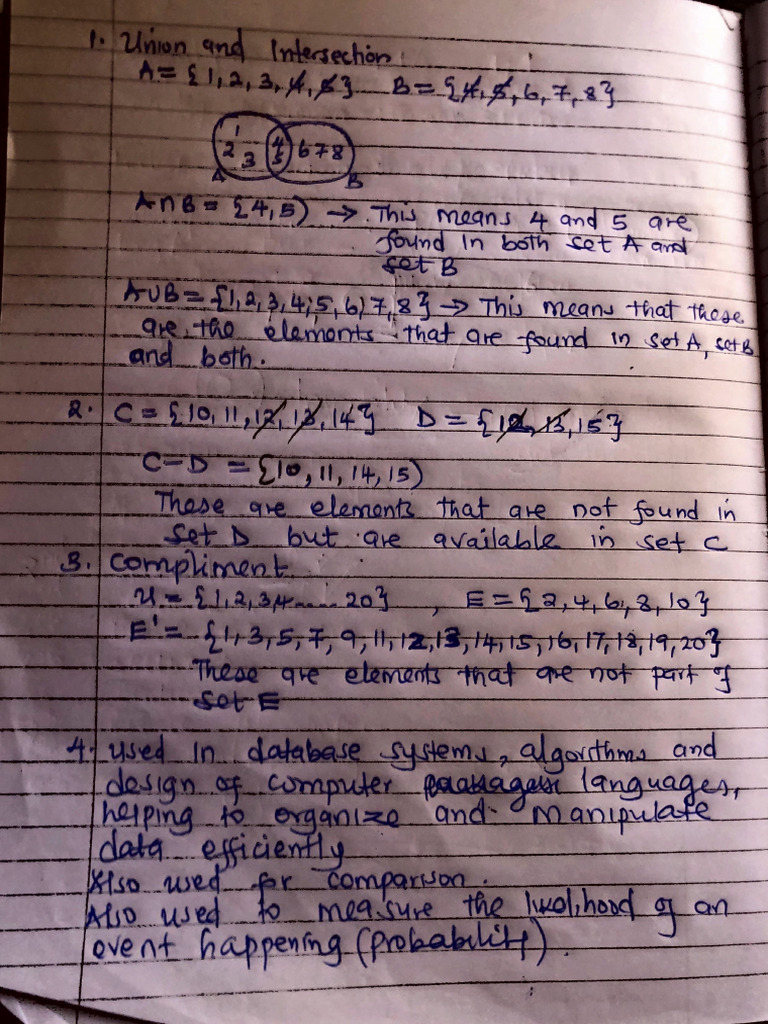 1. Union and Intersection
A = {1, 2, 3, 4, 5} B = {4, 5, 6, 7, 8}
1
2 3 4 5 6 7 8
A B
A∩B = {4, 5) → This means 4 and 5 are
found in both set A and
set B
A∪B = {1, 2, 3, 4, 5, 6, 7, 8} → This means that these
are the elements that are found in set A, set B
and both.
2. C = {10, 11, 12, 13, 14} D = {12, 13, 15}
C - D = {10, 11, 14, 15)
These are elements that are not found in
set D but are available in set C
3. Compliment
U = {1, 2, 3, 4 ...... 20} , E = {2, 4, 6, 8, 10}
E' = {1, 3, 5, 7, 9, 11, 12, 13, 14, 15, 16, 17, 18, 19, 20}
These are elements that are not part of
set E
4. Used in database systems, algorithms and
design of computer languages,
helping to organize and manipulate
data efficiently
Also used for comparison.
Also used to measure the likelihood of an
event happening (probability).